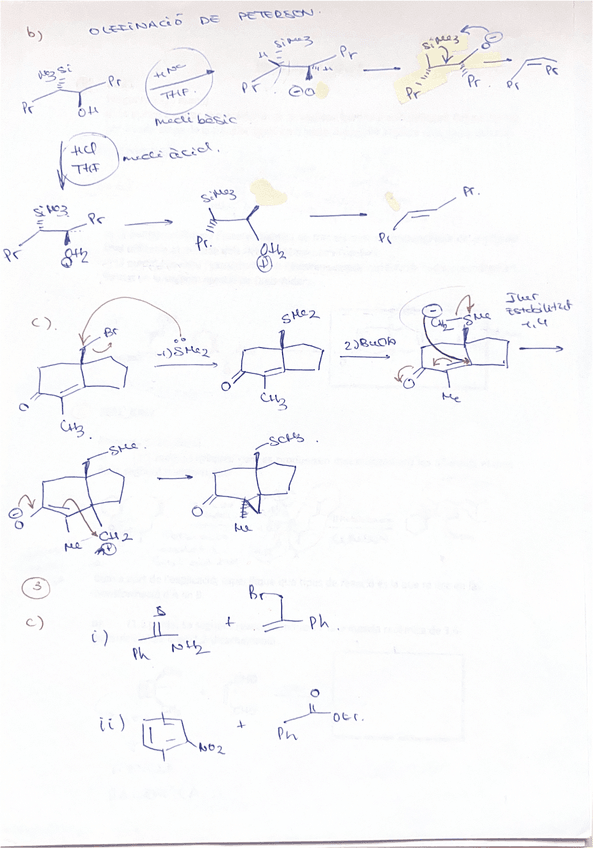 b) OLEFINACIÓ DE PETERSEN.
Me3Si
Pr
Pr
OH
HNa
THF
medi bàsic
SiMe3
H
Pr
Pr
H
⊖O
SiMe3
O⊖
Pr
Pr
Pr
Pr
HCl
THF
medi àcid.
SiMe3
Pr
Pr
OH2
⊕
SiMe3
Pr.
OH2
⊕
Pr
Pr.
c).
Br
O
CH3
1) SMe2
SMe2
O
CH3
2) BuOK
⊖
CH2
SMe
O
Me
Ilur
estabilitzat
1,4
SMe
⊖O
Me
CH2
⊕
SCH3
O
Me
3
c)
i)
S
Ph
NH2
+
Br
Ph
ii)
NO2
+
O
Ph
OEt.